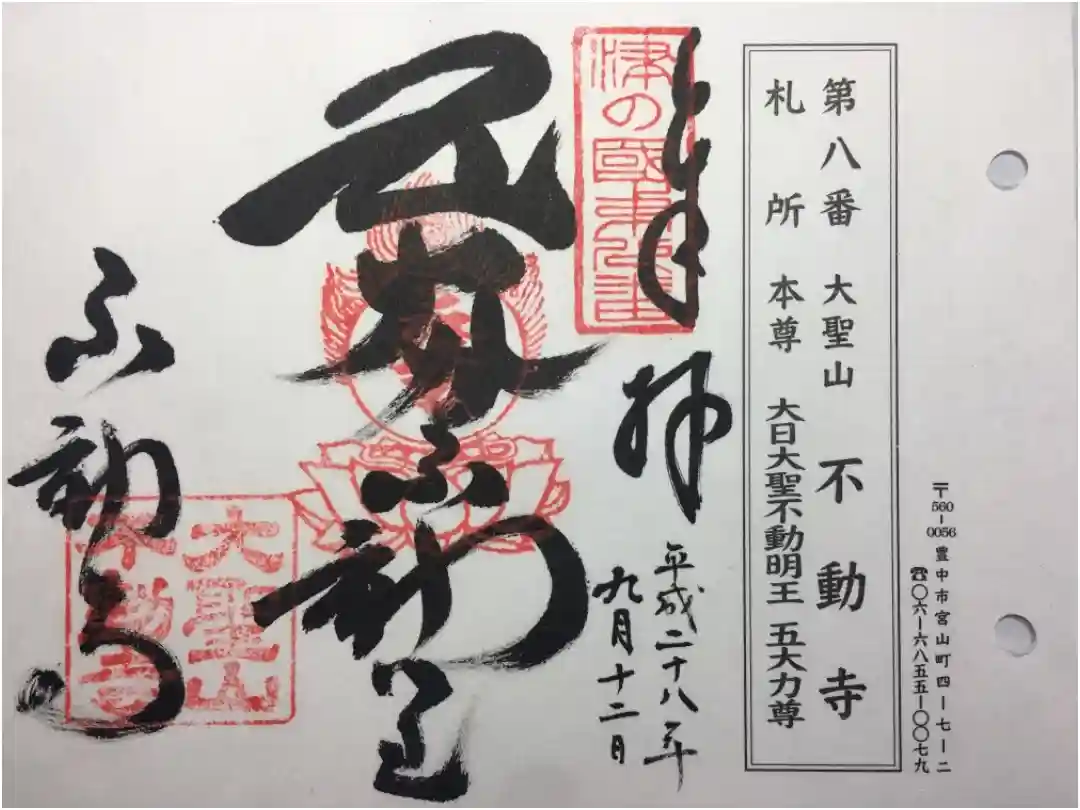 〒560-0056 豊中市宮山町四ー七ー二
☎〇六ー六八五五ー〇〇七九
第八番 大聖山 不動寺
札所 本尊 大日大聖不動明王 五大力尊
奉拝
平成二十八年
九月十二日
津の國
不動
不動寺
大聖山
不動寺